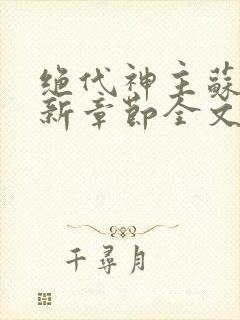 绝代神主蘇
新章節全文
千尋月